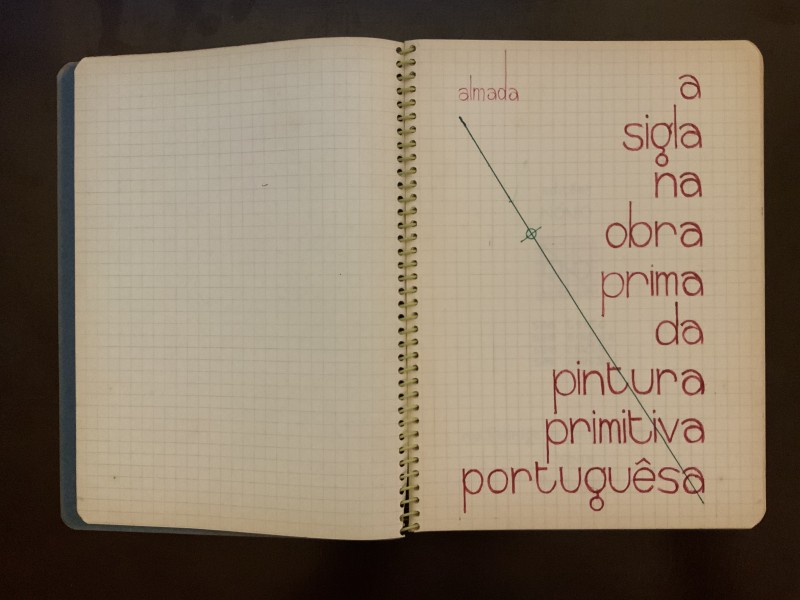 almada
a
sigla
na
obra
prima
da
pintura
primitiva
portuguêsa